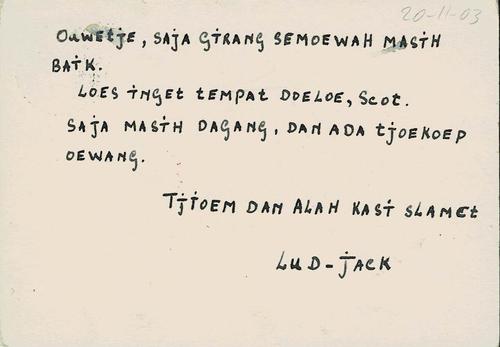 20-11-03
Ouwetje, saja girang semoewah masih
baik.
Loes inget tempat doeloe, Scot.
Saja masih dagang, dan ada tjoekoep
oewang.
Tjioem dan Alah kasi slamet
Lud-Jack